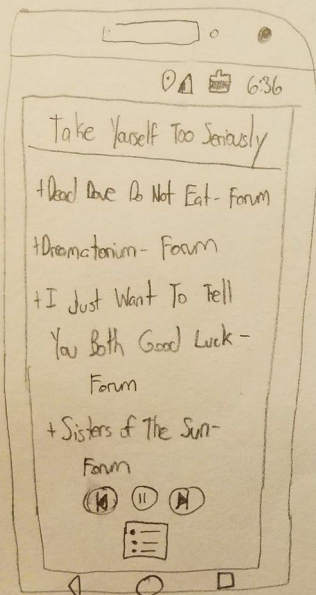 6:36
Take Yourself Too Seriously
+Dead Dove Do Not Eat- Forum
+Dreamatorium- Forum
+I Just Want To Tell
You Both Good Luck-
Forum
+Sisters of The Sun-
Forum